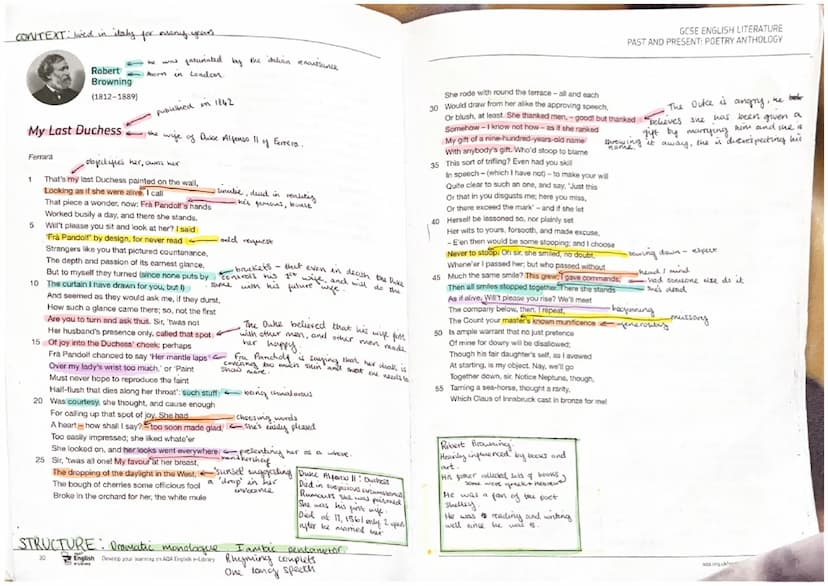 CONTEXT: lived in italy for many years
he was fascinated by the italian renaissance
Robert
Browning
(1812–1889)
born in London
published in 1842
My Last Duchess
the wife of Duke Alfonso II of Ferrara.
Ferrara
objectifies her, owns her
1 That's my last Duchess painted on the wall,
Looking as if she were alive. I call
simile, dead in reality
That piece a wonder, now: Frà Pandolf's hands
his famous, boast
Worked busily a day, and there she stands.
5 Will't please you sit and look at her? I said
'Frà Pandolf' by design, for never read
odd request
Strangers like you that pictured countenance,
The depth and passion of its earnest glance,
But to myself they turned (since none puts by
brackets – that even in death the Duke
controls his 1st wife, and will do the
same with his future wife
10 The curtain I have drawn for you, but I)
And seemed as they would ask me, if they durst,
How such a glance came there; so, not the first
Are you to turn and ask thus. Sir, 'twas not
Her husband's presence only, called that spot
The Duke believed that his wife
with other men, and other men made
her happy.
15 Of joy into the Duchess' cheek: perhaps
Frà Pandolf chanced to say 'Her mantle laps
Frà Pandolf is saying that her cloak is
covering too much skin and that she needs to
show more.
Over my lady's wrist too much,' or 'Paint
Must never hope to reproduce the faint
Half-flush that dies along her throat': such stuff
being chivalrous
20 Was courtesy, she thought, and cause enough
For calling up that spot of joy. She had
choosing words
A heart – how shall I say? – too soon made glad,
she's easily pleased
Too easily impressed; she liked whate'er
She looked on, and her looks went everywhere.
presenting her as a whore.
25 Sir, 'twas all one! My favour at her breast,
The dropping of the daylight in the West,
'sunset' suggesting
a 'drop' in her
The bough of cherries some officious fool
Broke in the orchard for her, the white mule
Duke Alfonso II: Duchess
Died in suspicious circumstances
Rumours she was poisoned
She was his first wife.
Died at 17, 1561 only 2 years
after he married her
STRUCTURE: Dramatic monologue Iambic pentameter
Rhyming couplets
One long speech
30
English
Develop your learning on AQA English e-Library
GCSE ENGLISH LITERATURE
PAST AND PRESENT: POETRY ANTHOLOGY
She rode with round the terrace – all and each
30 Would draw from her alike the approving speech,
Or blush, at least. She thanked men, – good! but thanked
Somehow – I know not how – as if she ranked
My gift of a nine-hundred-years-old name
With anybody's gift. Who'd stoop to blame
The Duke is angry, he
believes she has been given a
gift by marrying him and she is
throwing it away, she is disrespecting his
name.
35 This sort of trifling? Even had you skill
In speech – (which I have not) – to make your will
Quite clear to such an one, and say, 'Just this
Or that in you disgusts me; here you miss,
Or there exceed the mark' – and if she let
40 Herself be lessoned so, nor plainly set
Her wits to yours, forsooth, and made excuse,
– E'en then would be some stooping; and I choose
Never to stoop. Oh sir, she smiled, no doubt,
Whene'er I passed her; but who passed without
45 Much the same smile? This grew; I gave commands;
had someone else do it
Then all smiles stopped together. There she stands
She's dead
As if alive. Will't please you rise? We'll meet
The company below, then. I repeat,
The Count your master's known munificence
generosity
50 Is ample warrant that no just pretence
Of mine for dowry will be disallowed;
Though his fair daughter's self, as I avowed
At starting, is my object. Nay, we'll go
Together down, sir. Notice Neptune, though,
55 Taming a sea-horse, thought a rarity,
Which Claus of Innsbruck cast in bronze for me!
Robert Browning.
Heavily influenced by books and
art.
His father collected lots of books,
some were Greek + Hebrew
He was a fan of the poet
Shelley.
He was reading and writing
well since he was 5.